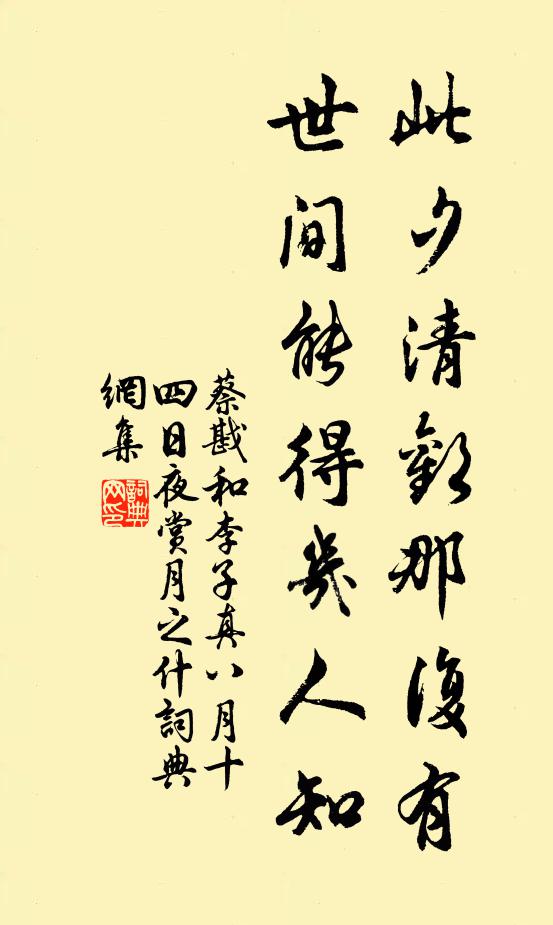 此夕清歡那復有
世间能得幾人知
蔡戡和李子真八月十
四日夜賞月之什詞典
網集
詞典
网印